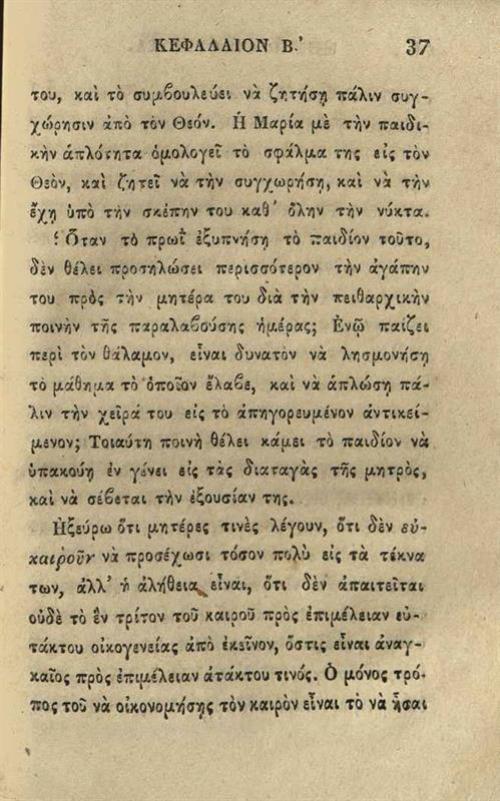 ΚΕΦΑΛΑΙΟΝ Β.' 37
του, καὶ τὸ συμβουλεύει νὰ ζητήσῃ πάλιν συγ-
χώρησιν ἀπὸ τὸν Θεόν. Ἡ Μαρία μὲ τὴν παιδι-
κὴν ἁπλότητα ὁμολογεῖ τὸ σφάλμα της εἰς τὸν
Θεὸν, καὶ ζητεῖ νὰ τὴν συγχωρήσῃ, καὶ νὰ τὴν
ἔχῃ ὑπὸ τὴν σκέπην του καθ' ὅλην τὴν νύκτα.
Ὅταν τὸ πρωῒ ἐξυπνήσῃ τὸ παιδίον τοῦτο,
δὲν θέλει προσηλώσει περισσότερον τὴν ἀγάπην
του πρὸς τὴν μητέρα του διὰ τὴν πειθαρχικὴν
ποινὴν τῆς παραλαβούσης ἡμέρας; Ἐνῷ παίζει
περὶ τὸν θάλαμον, εἶναι δυνατὸν νὰ λησμονήσῃ
τὸ μάθημα τὸ ὁποῖον ἔλαβε, καὶ νὰ ἁπλώσῃ πά-
λιν τὴν χεῖρά του εἰς τὸ ἀπηγορευμένον ἀντικεί-
μενον; Τοιαύτη ποινὴ θέλει κάμει τὸ παιδίον νὰ
ὑπακούῃ ἐν γένει εἰς τὰς διαταγὰς τῆς μητρὸς,
καὶ νὰ σέβεται τὴν ἐξουσίαν της.
Ἠξεύρω ὅτι μητέρες τινὲς λέγουν, ὅτι δὲν εὐ-
καιροῦν νὰ προσέχωσι τόσον πολὺ εἰς τὰ τέκνα
των, ἀλλ' ἡ ἀλήθεια εἶναι, ὅτι δὲν ἀπαιτεῖται
οὐδὲ τὸ ἓν τρίτον τοῦ καιροῦ πρὸς ἐπιμέλειαν εὐ-
τάκτου οἰκογενείας ἀπὸ ἐκεῖνον, ὅστις εἶναι ἀναγ-
καῖος πρὸς ἐπιμέλειαν ἀτάκτου τινός. Ὁ μόνος τρό-
πος τοῦ νὰ οἰκονομήσῃς τὸν καιρὸν εἶναι τὸ νὰ ἦσαι